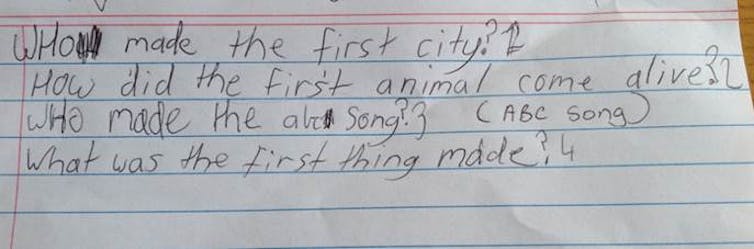 WHO made the first city? 1
How did the first animal come alive? 2
WHO made the abc song? 3 (ABC song)
What was the first thing made? 4